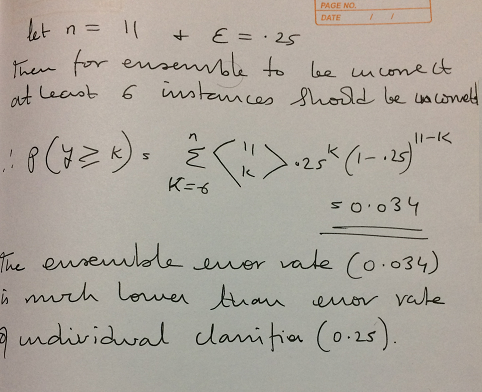 PAGE NO.
DATE / /
let n = 11 + ε = .25
Then for ensemble to be incorrect
at least 6 instances should be incorrect
∴ P(y ≥ k) = n Σ K=6 ⟨11 k⟩ .25^k (1-.25)^11-k
= 0.034
The ensemble error rate (0.034)
is much lower than error rate
of individual classifier (0.25).